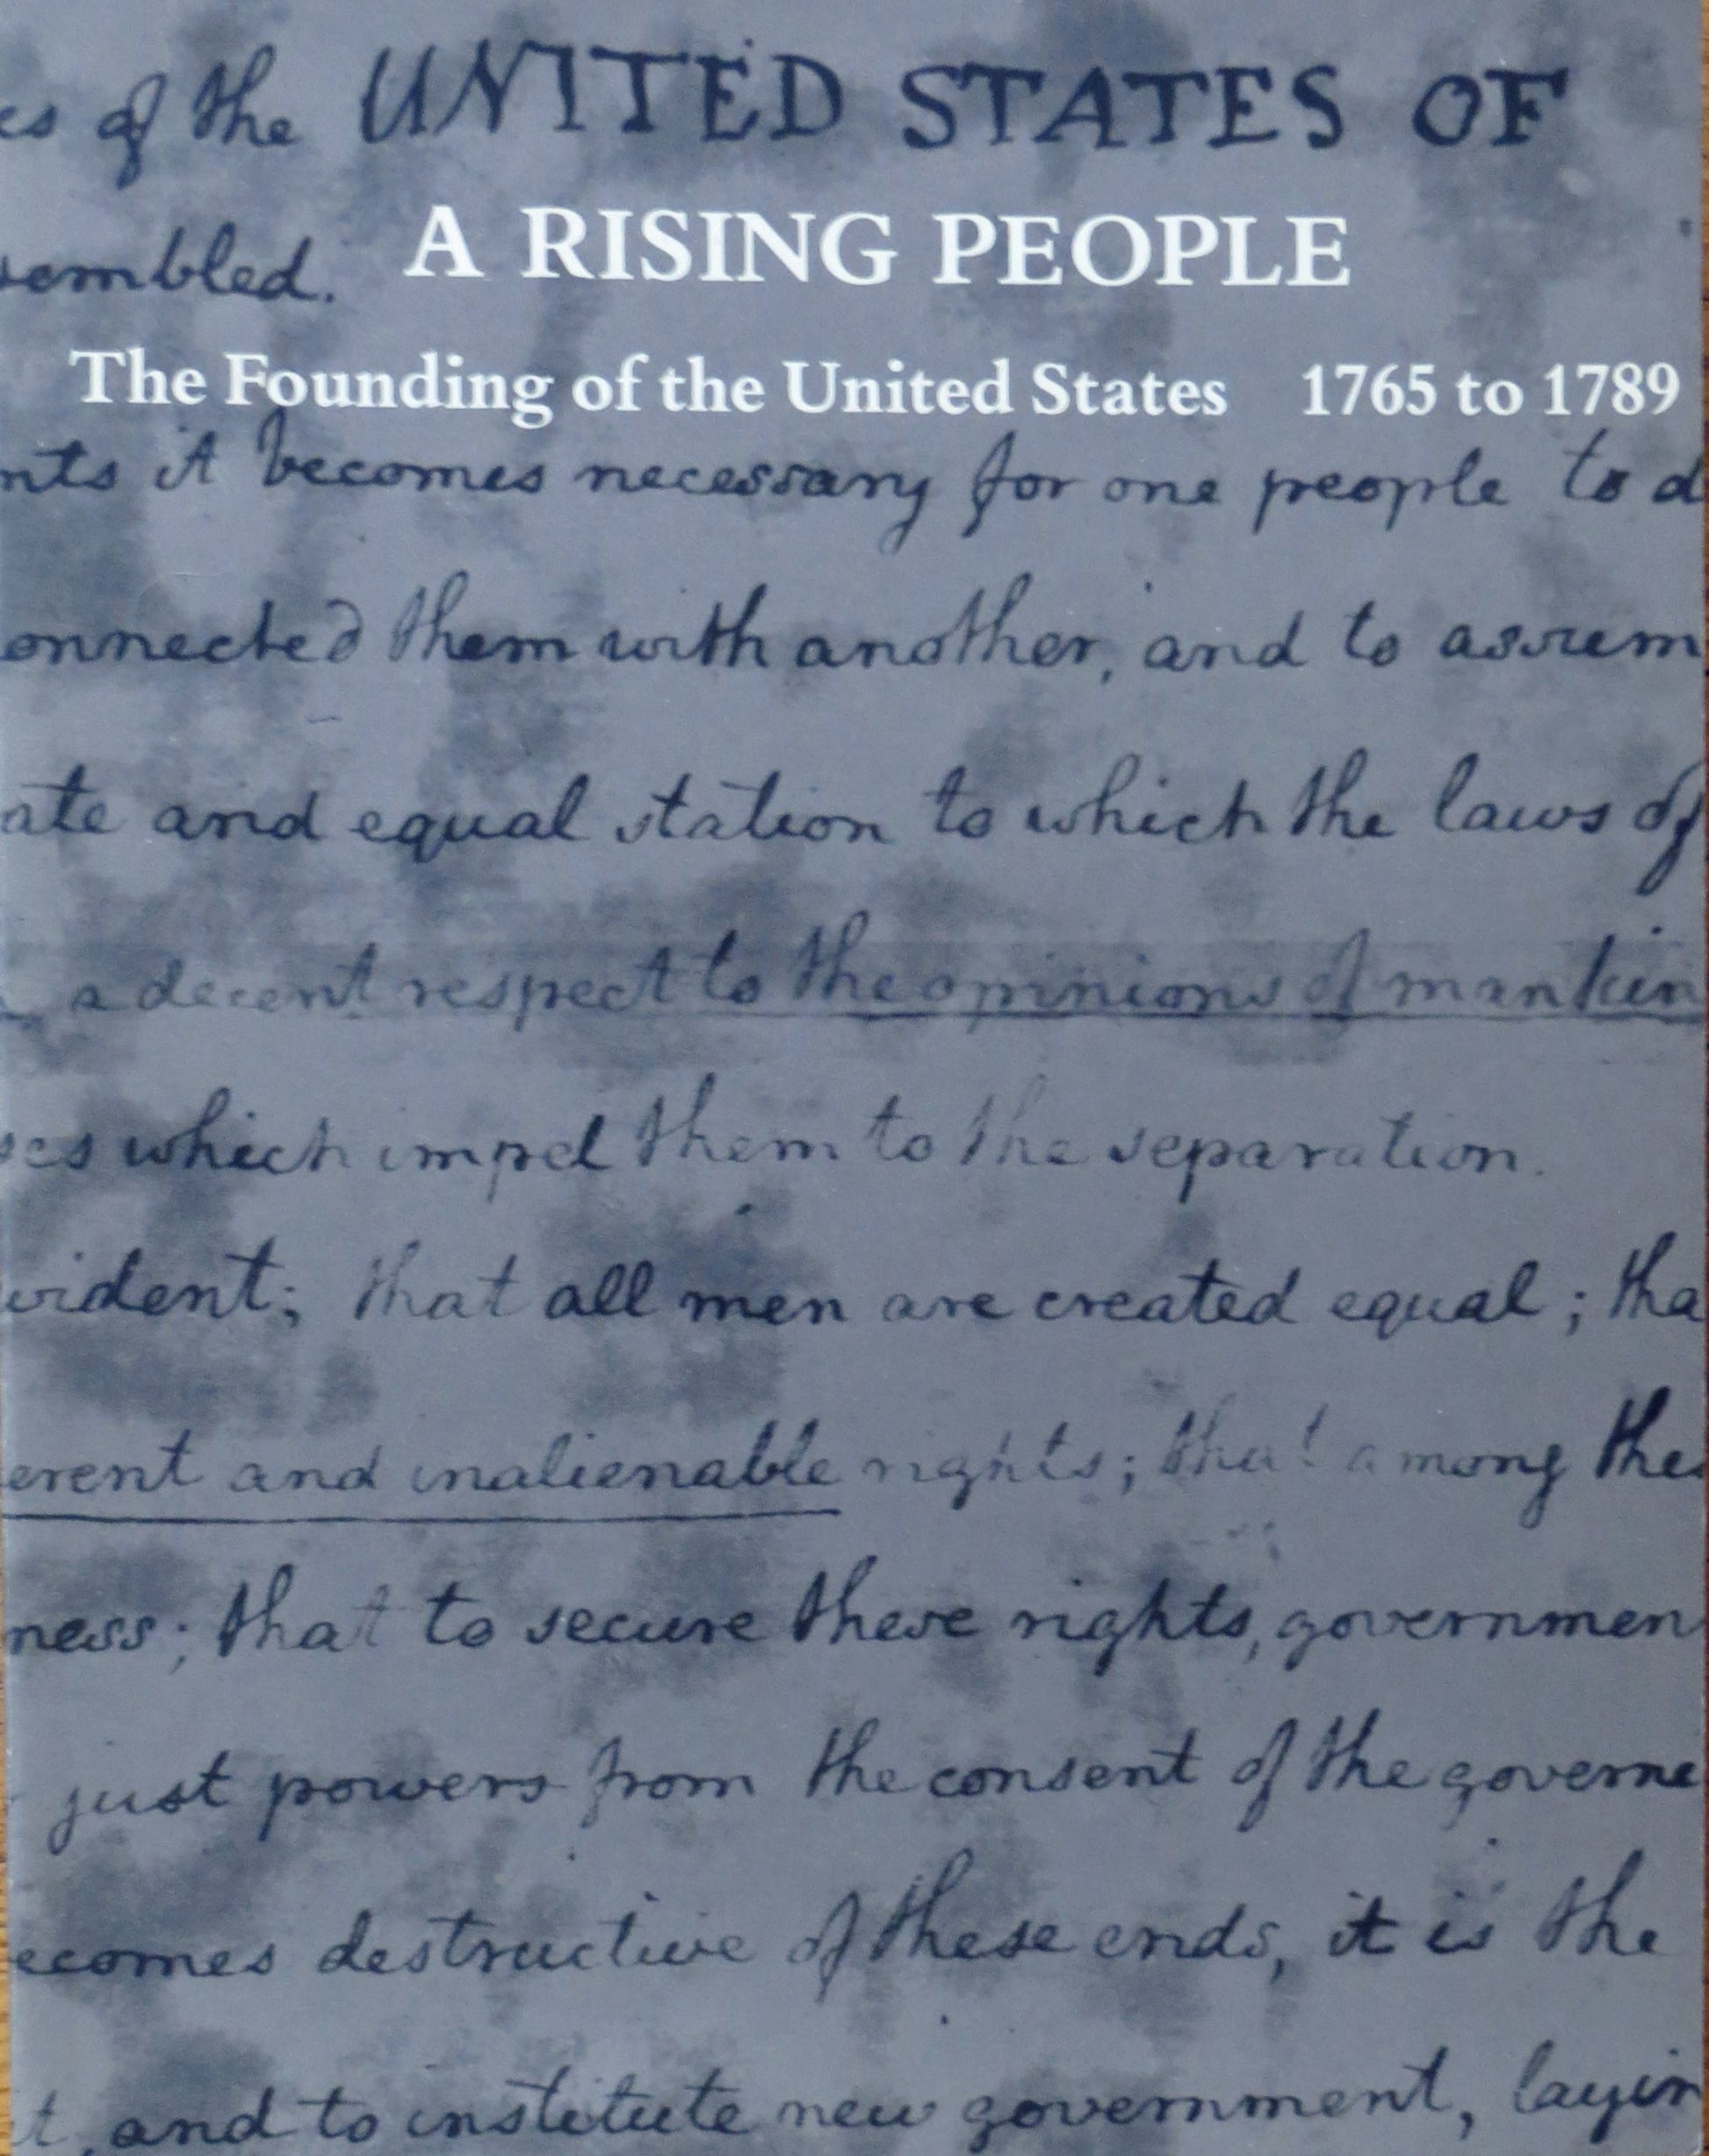 es of the UNITED STATES OF
sembled.
A RISING PEOPLE
The Founding of the United States 1765 to 1789
nts it becomes necessary for one people to d
onnected them with another, and to assum
ate and equal station to which the laws of
a decent respect to the opinions of mankin
ses which impel them to the separation.
vident; that all men are created equal; tha
erent and inalienable rights; that among the
ness; that to secure these rights, governmen
just powers from the consent of the governe
ecomes destructive of these ends, it is the
t, and to institute new government, layin